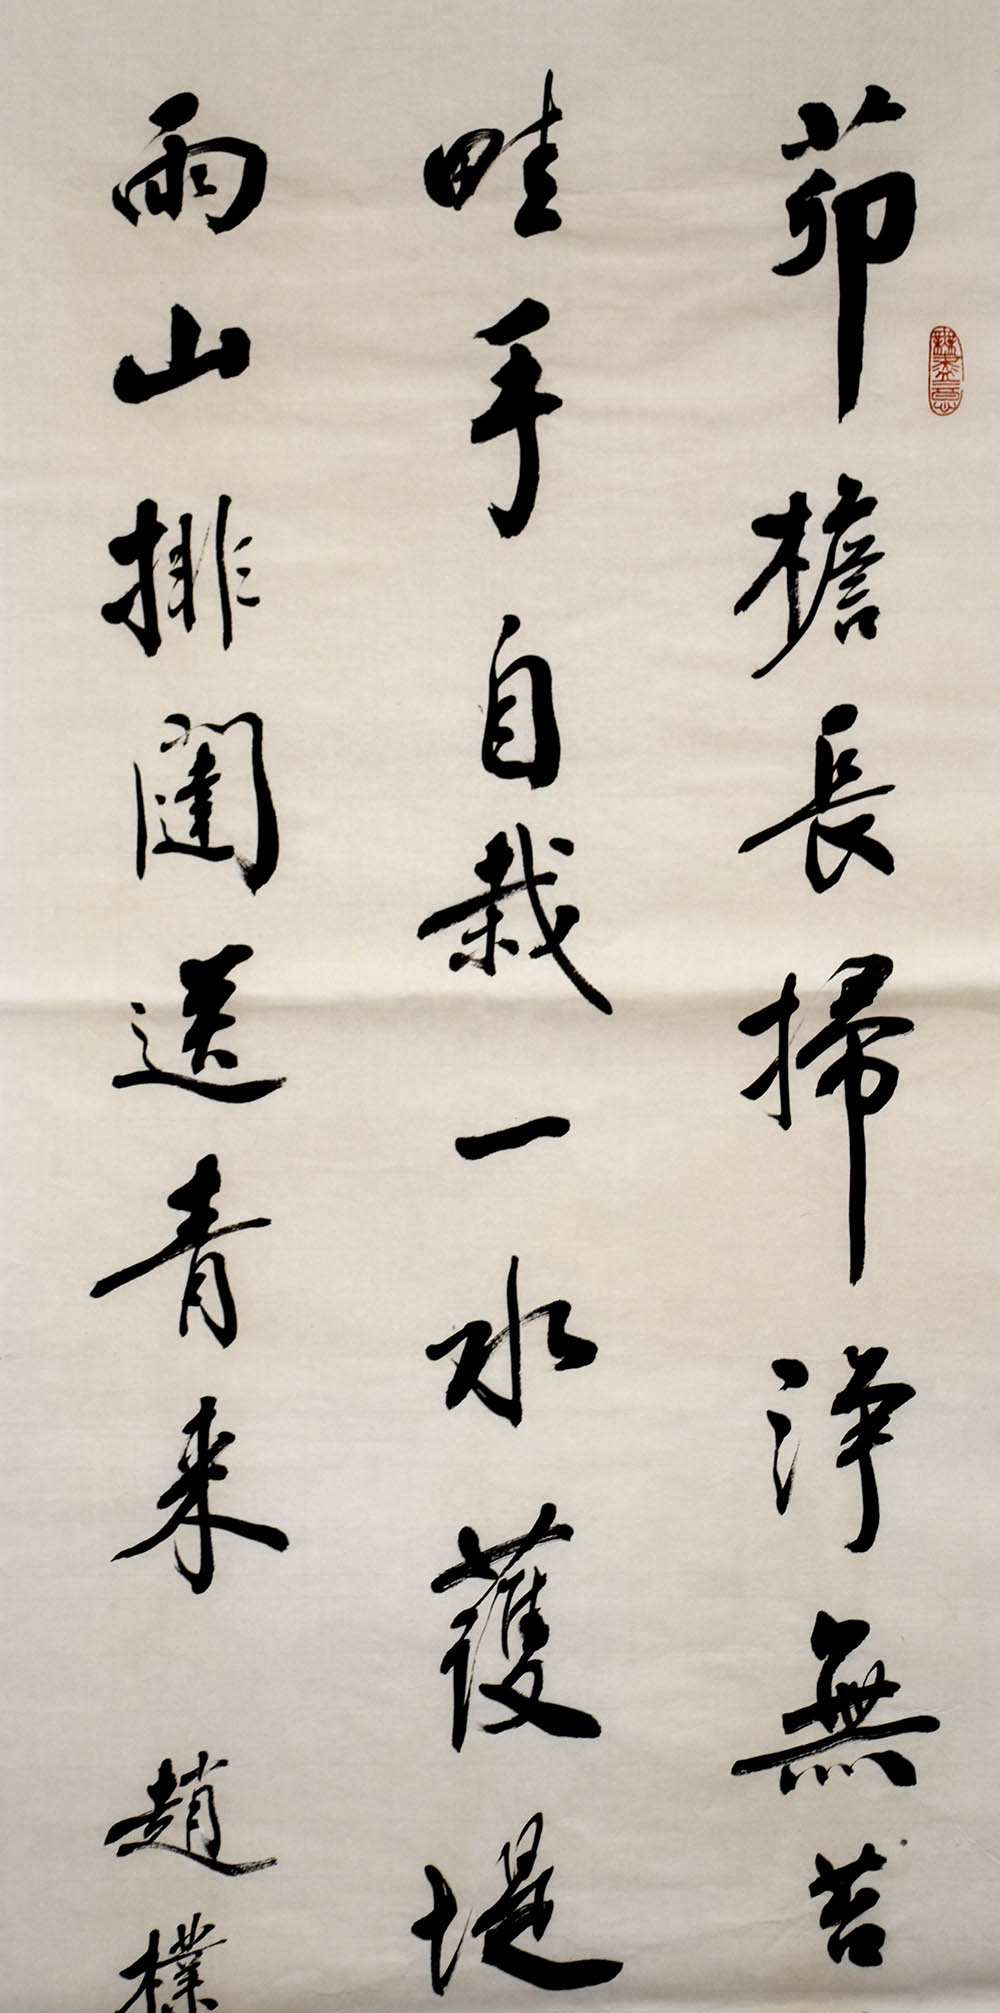 茆檐長掃淨無苔
畦手自栽一水護堤
兩山排闥送青来
趙樸
無盡意